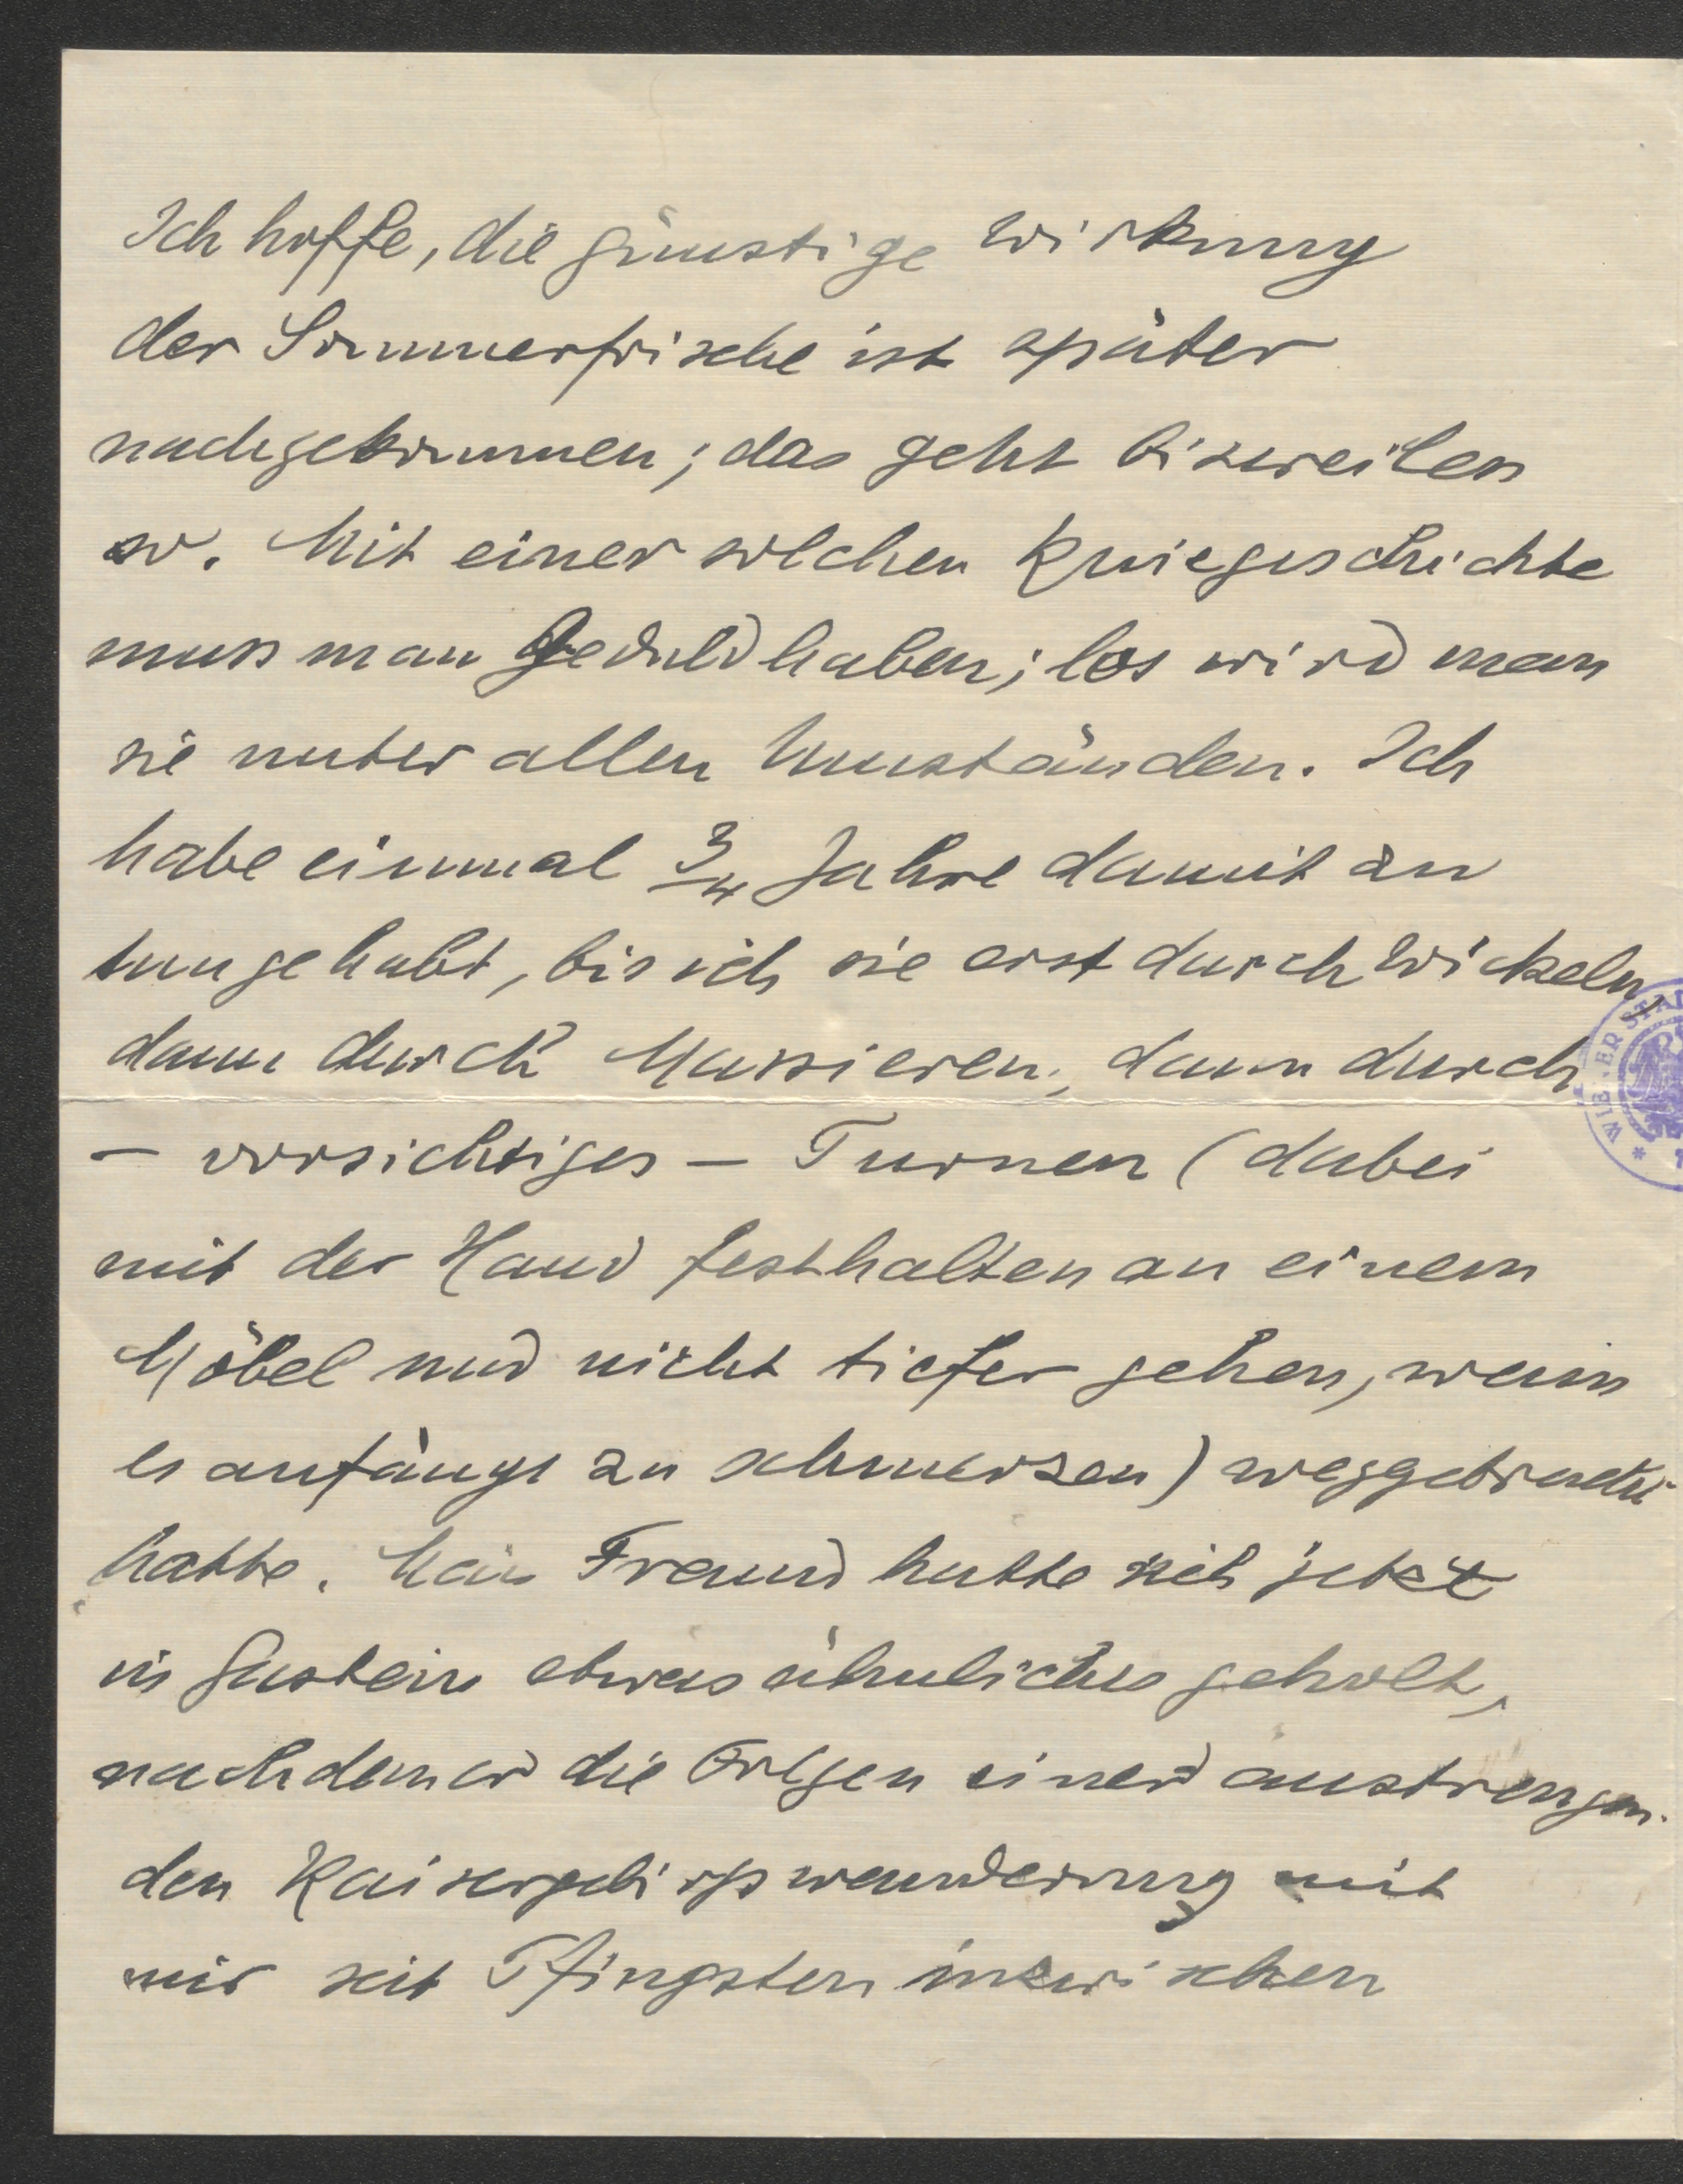 Ich hoffe, die günstige Wirkung
der Sommerfrische ist später
nachgekommen; das geht bisweilen
so. Mit einer solchen Kniegeschichte
muss man Geduld haben; los wird man
sie unter allen Umständen. Ich
habe einmal 3/4 Jahre damit zu
tun gehabt, bis ich sie erst durch Wickeln,
dann durch Massieren, dann durch
– vorsichtiges – Turnen (dabei
mit der Hand festhalten an einem
Möbel und nicht tiefer gehen, wenn
es anfängt zu schmerzen) weggebracht
hatte. Mein Freund hatte sich jetzt
in Gastein etwas ähnliches geholt,
nachdem er die Folgen einer anstrengen-
den Kaisergebirgswanderung mit
mir seit Pfingsten inzwischen
WIENER STA